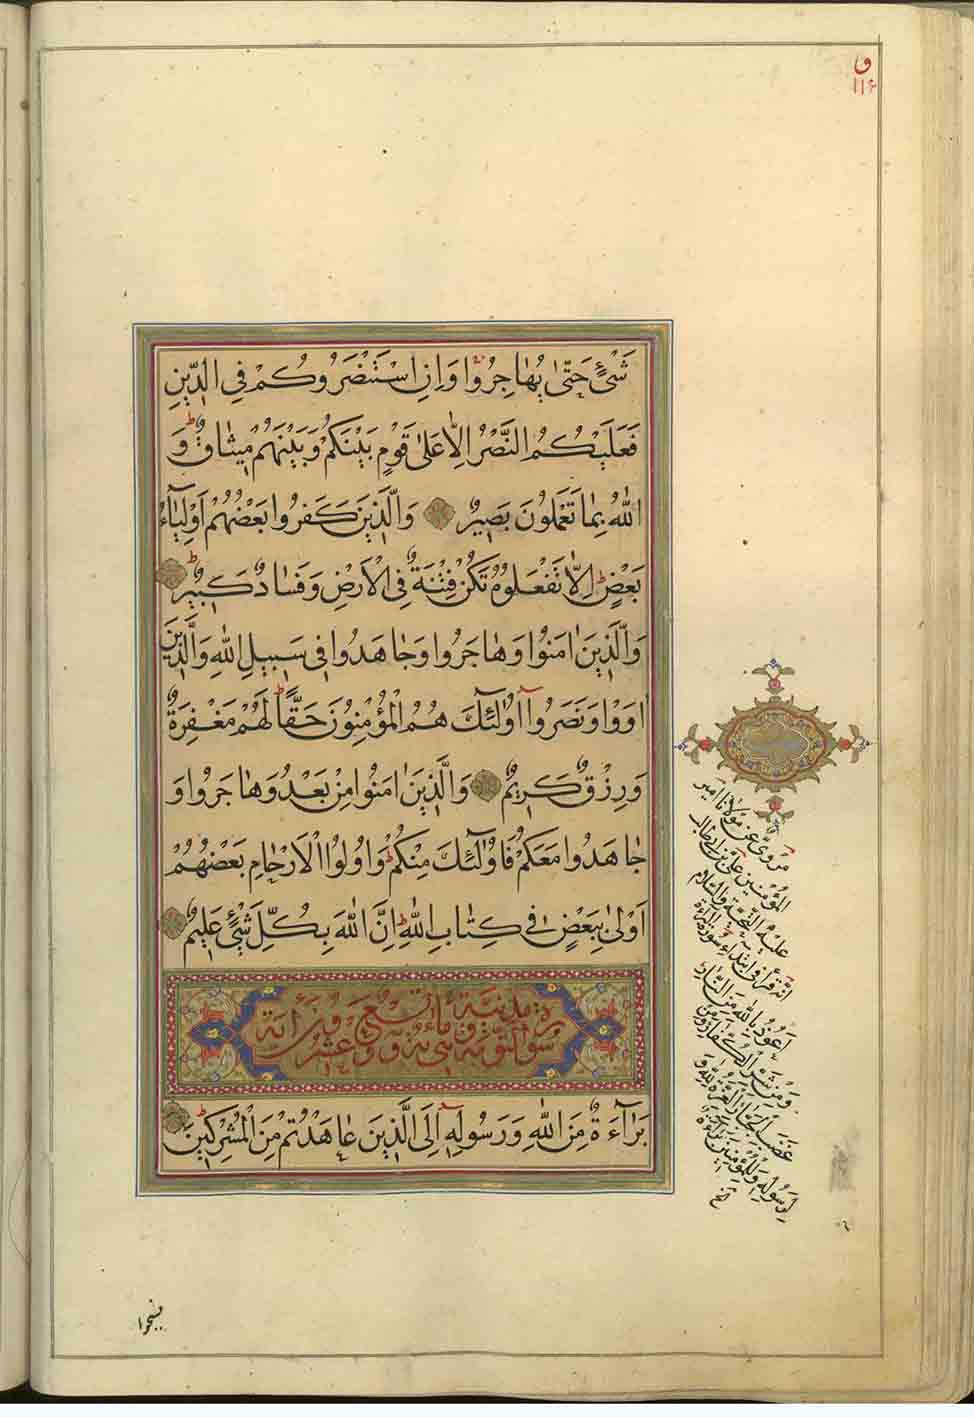 و
۱۱۶
شَیْءٍ حَتّٰی یُهٰاجِرُوا وَاِنِ اسْتَنْصَرُوكُمْ فِی الدّٖینِ
فَعَلَیْكُمُ النَّصْرُ اِلّٰا عَلیٰ قَوْمٍ بَیْنَكُمْ وَبَیْنَهُمْ مٖیثٰاقٌ وَ
اللّٰهُ بِمٰا تَعْمَلُونَ بَصٖیرٌ وَالَّذٖینَ كَفَرُوا بَعْضُهُمْ اَوْلِیٰٓاءُ
بَعْضٍ اِلّٰا تَفْعَلُوهُ تَكُنْ فِتْنَةٌ فِی الْاَرْضِ وَفَسٰادٌ كَبٖیرٌ
وَالَّذٖینَ اٰمَنُوا وَهٰاجَرُوا وَجٰاهَدُوا فٖی سَبٖیلِ اللّٰهِ وَالَّذٖینَ
اٰوَوْا وَنَصَرُوٓا اُولٰٓئِكَ هُمُ الْمُؤْمِنُونَ حَقًّا لَهُمْ مَغْفِرَةٌ
وَرِزْقٌ كَرٖیمٌ وَالَّذٖینَ اٰمَنُوا مِنْ بَعْدُ وَهٰاجَرُوا وَ
جٰاهَدُوا مَعَكُمْ فَاُولٰٓئِكَ مِنْكُمْ وَاُولُوا الْاَرْحٰامِ بَعْضُهُمْ
اَوْلیٰ بِبَعْضٍ فٖی كِتٰابِ اللّٰهِ اِنَّ اللّٰهَ بِكُلِّ شَیْءٍ عَلٖیمٌ
سورة التوبة مدنیة وهی مائة وتسع وعشرون اٰیة
بَرٰٓاءَةٌ مِنَ اللّٰهِ وَرَسُولِهٖٓ اِلَی الَّذٖینَ عٰاهَدْتُمْ مِنَ الْمُشْرِكٖینَ
مَرْوِیٌّ عَنْ مَوْلٰانٰا اَمٖیرِ
الْمُؤْمِنٖینَ عَلِیِّ بْنِ اَبٖی طٰالِبٍ
عَلَیْهِ التَّحِیَّةُ وَالسَّلٰامُ
اَنَّهُ قَرَأَ فٖی ابْتِدٰاءِ سُورَةِ الْبَرٰاءَةِ
اَعُوذُ بِاللّٰهِ مِنَ النّٰارِ
وَمِنْ شَرِّ الْكُفّٰارِ وَمِنْ
غَضَبِ الْجَبّٰارِ الْعِزَّةُ لِلّٰهِ وَ
لِرَسُولِهٖ وَلِلْمُؤْمِنٖینَ بَرٰاءَةٌ
الخ
فسیحوا